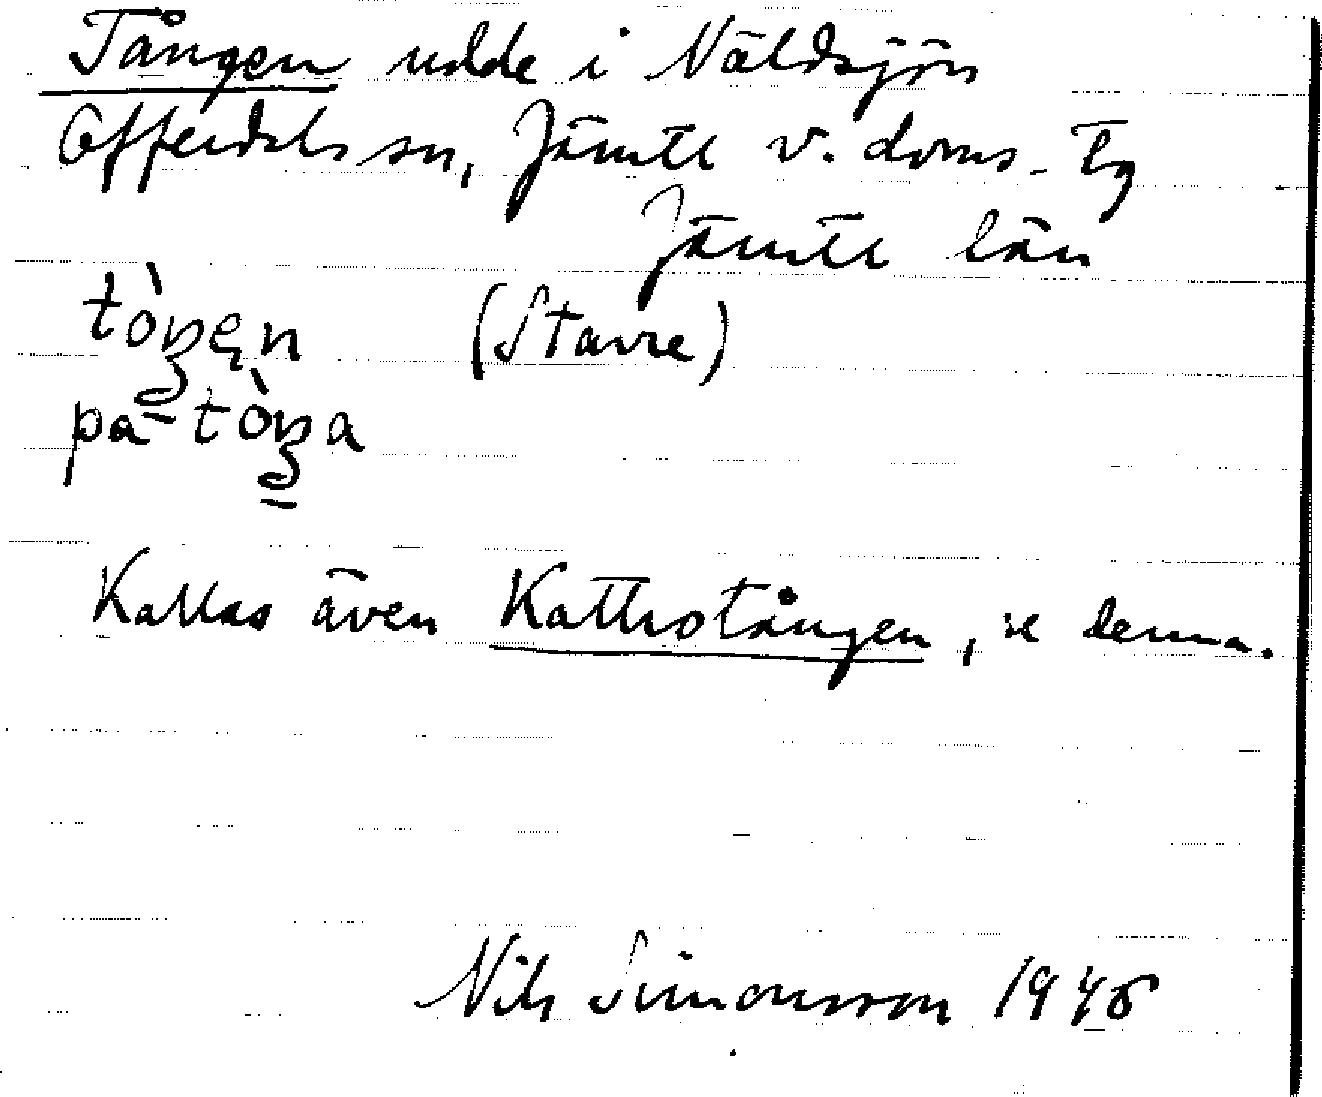 Tången udde i Näldsjön
Offerdals sn, Jämtl v. doms. tg
Jämtl län
tòŋen (Stavre)
pa-tòŋa
Kallas även Kattrotången, se denna.
Nils Simonsson 1946